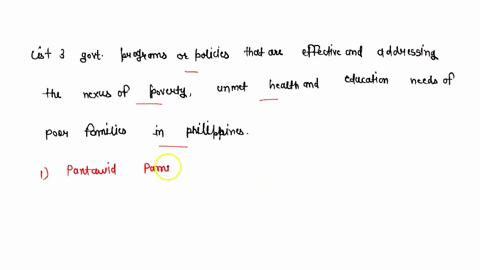 List 3 govt. programs or policies that are effective and addressing
the nexus of poverty, unmet health and education needs of
poor families in philippines.
1) Pantawid Pami